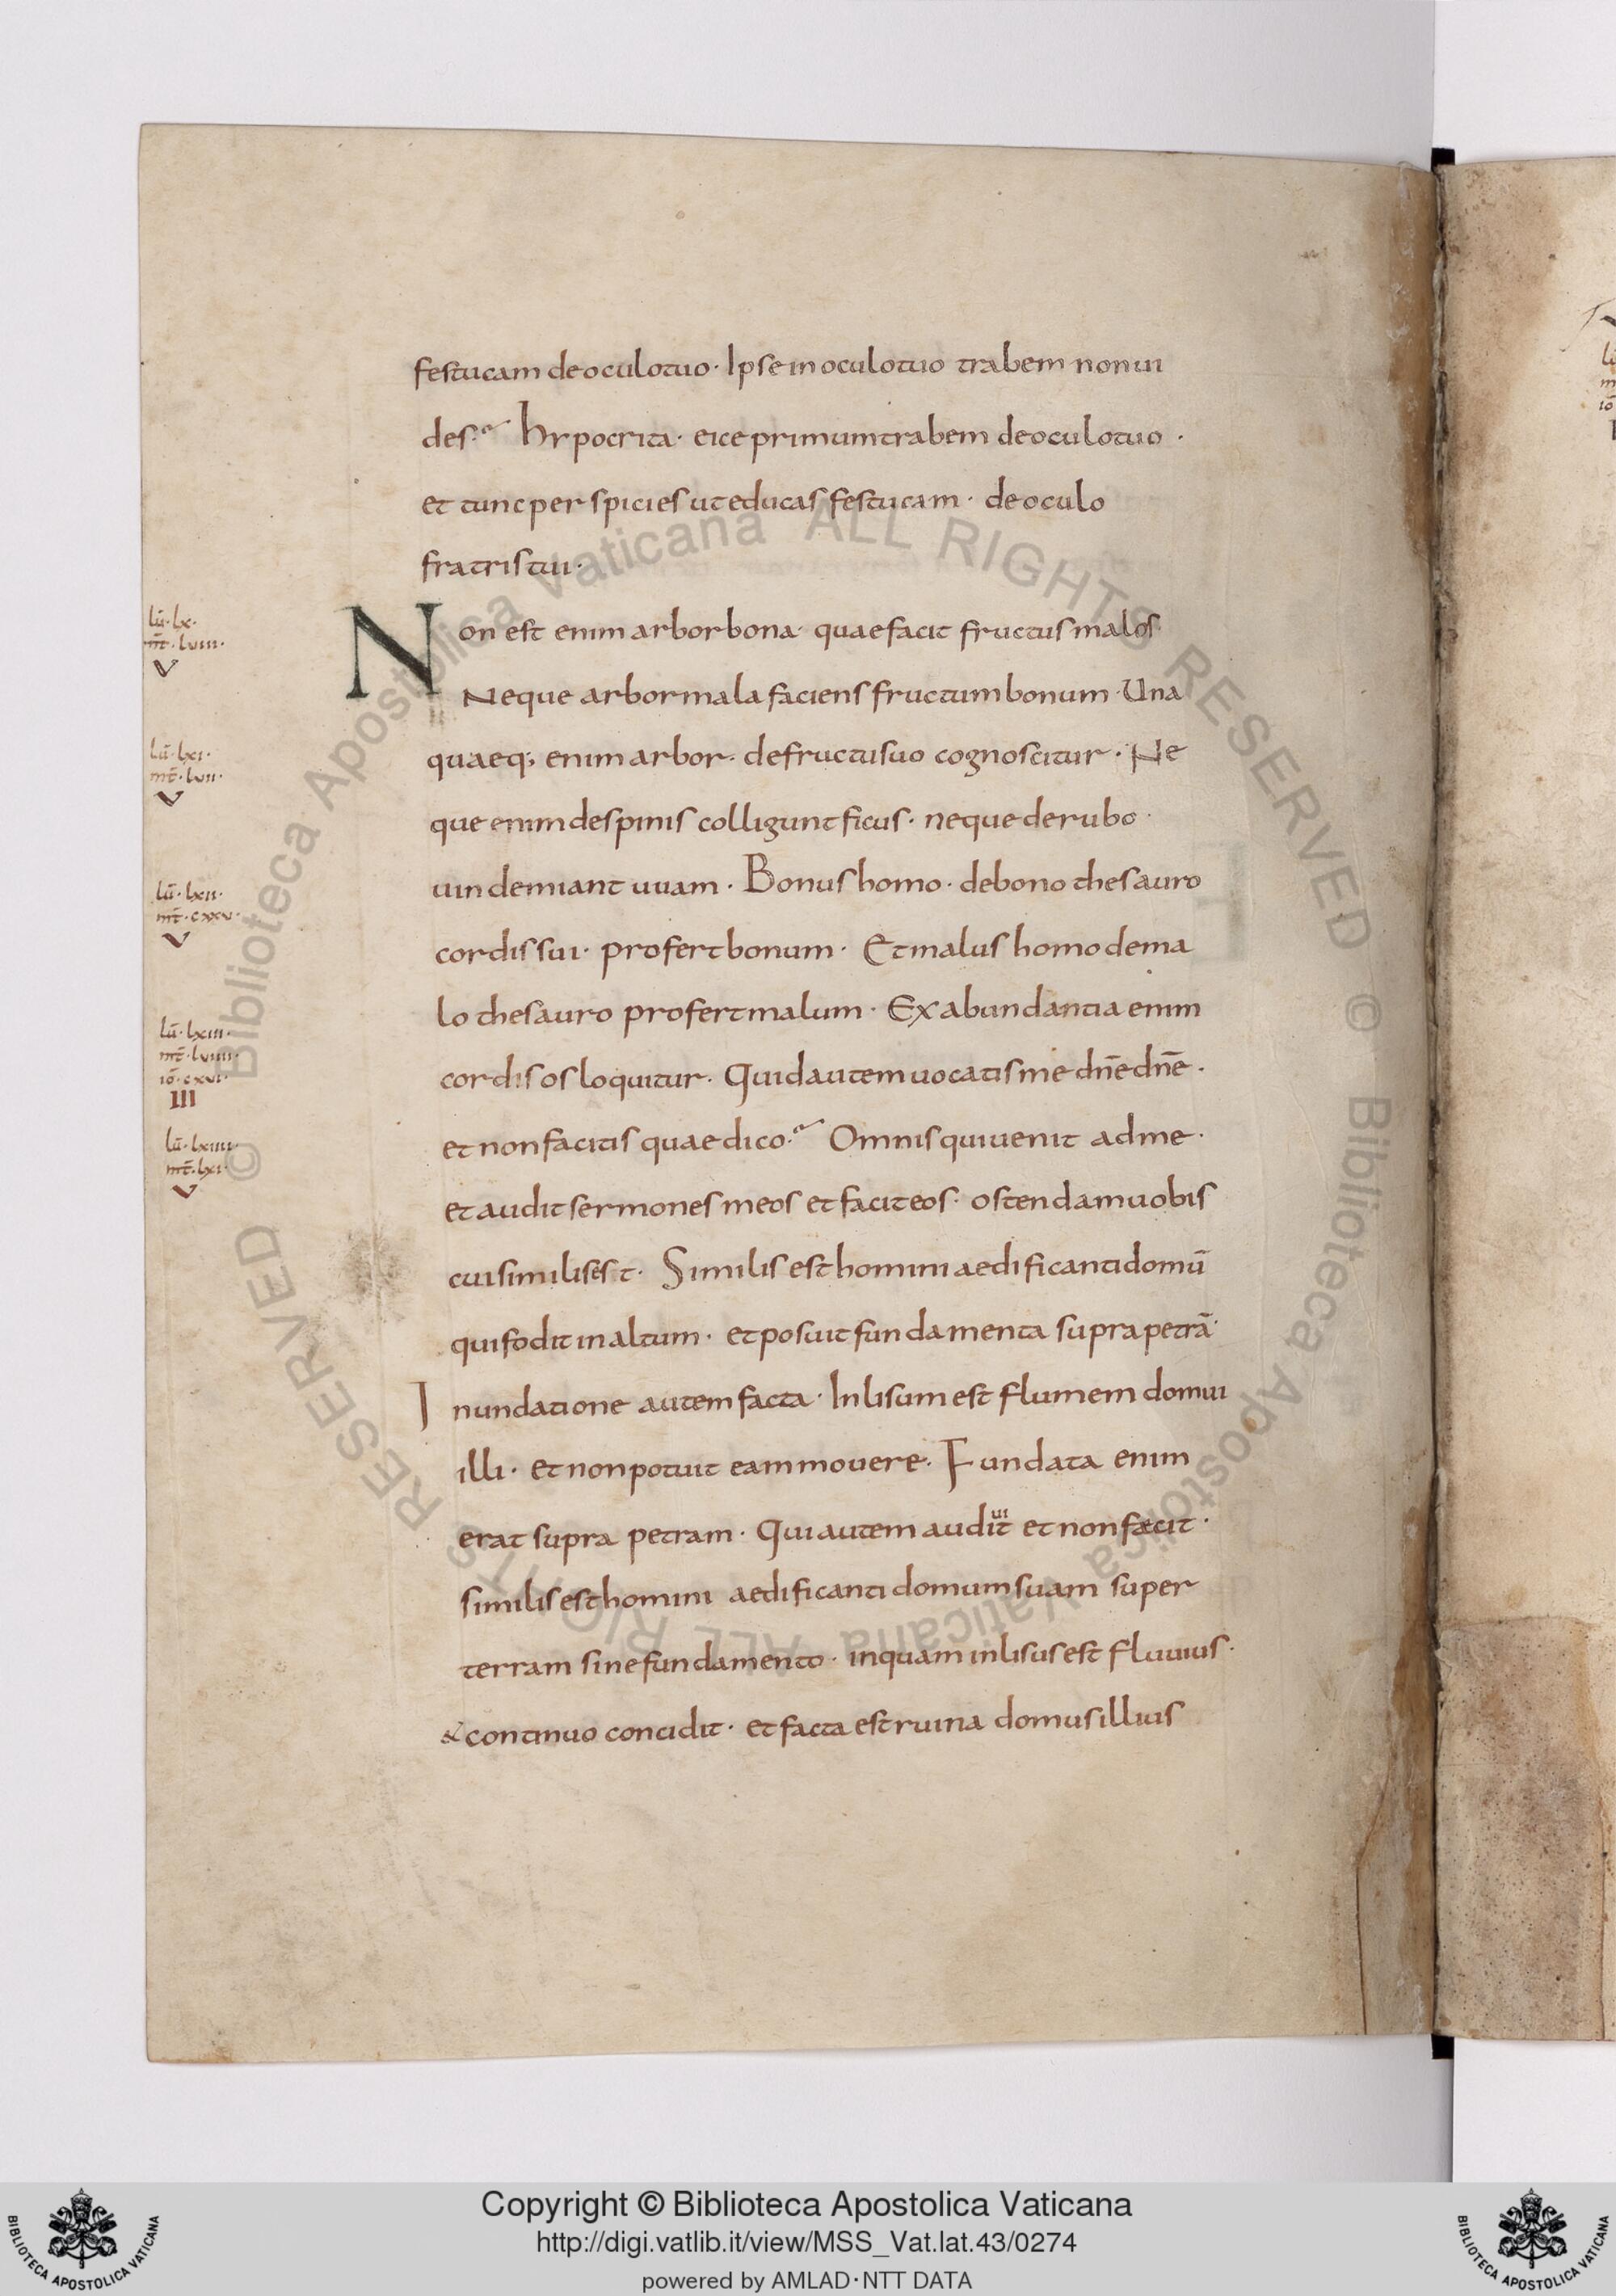 festucam deoculotuo· Ipse in oculotuo trabem non ui
des? hypocrita· eice primumtrabem deoculotuo ·
et tunc perspicies uteducas festucam · deoculo
fratristui·
Non est enim arborbona· quaefacit fructusmalos
Neque arbormala faciens fructumbonum · Una
quaeq; enim arbor· defructusuo cognoscitur · Ne
que enimdespinis colligunt ficus · neque derubo ·
uindemiant uuam · Bonushomo · debono thesauro
cordis sui · profertbonum · Et malus homodema
lo thesauro profertmalum · Exabundantia enim
cordis os loquitur · Quidautemuocatisme dn̄edn̄e ·
et nonfacitis quae dico? Omnisquiuenit adme ·
et audit sermones meos et faciteos· ostendamuobis
cui similisest · Similis esthomini aedificantidomū
quifodit inaltum · et posuit fundamenta suprapetrā
Inundatione autem facta · Inlisum est flumem domui
illi · et non potuit eammouere · Fundata enim
erat supra petram · Qui autem audiuit et non facit ·
similis esthomini aedificanti domumsuam super
terram sinefundamento · inquam inlisus est fluuius ·
& continuo concidit · et facta estruina domusillius
lū· lx·
mt̄· luiii·
V
lū· lxi·
mt̄· luii·
V
lū· lxii·
mt̄· cxxu·
V
lū· lxiii·
mt̄· luiiii·
iō· cxui·
III
lū· lxiiii·
mt̄· lxi·
V
© Biblioteca Apostolica Vaticana ALL RIGHTS RESERVED
© Biblioteca Apostolica Vaticana ALL RIGHTS RESERVED
Copyright © Biblioteca Apostolica Vaticana
http://digi.vatlib.it/view/MSS_Vat.lat.43/0274
powered by AMLAD·NTT DATA
BIBLIOTECA APOSTOLICA VATICANA
BIBLIOTECA APOSTOLICA VATICANA